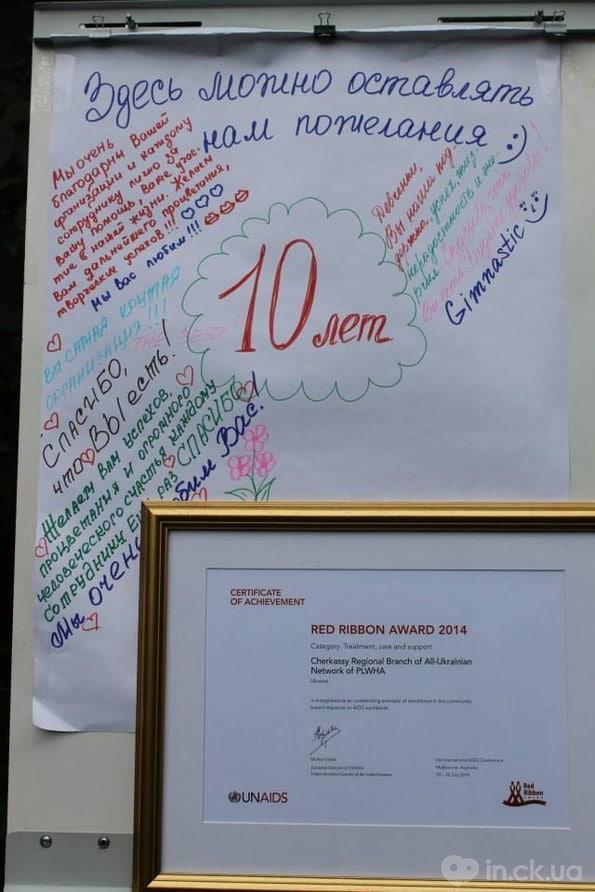 Здесь можно оставлять
нам пожелания
Мы очень
благодарны Вашей
организации и каждому
сотруднику лично за
вашу помощь, ваше учас-
тие в нашей жизни. Желаем
вам дальнейшего процветания,
творческих успехов!!!
Мы вас любим!!!
Вы самая крутая
организация!!!
THE BEST
Спасибо,
что Вы есть!
Желаем Вам успехов,
процветания и огромного
человеческого счастья каждому
сотруднику Ещё раз СПАСИБО!
Мы очень любим Вас!
10 лет
Девченки,
Вы наши
Gimnastic
CERTIFICATE
OF ACHIEVEMENT
RED RIBBON AWARD 2014
Category: Treatment, care and support
Cherkassy Regional Branch of All-Ukrainian
Network of PLWHA
Ukraine
is recognized as an outstanding example of excellence in the community
based response to AIDS worldwide
Michel Sidibé
Executive Director of UNAIDS
Under Secretary General of the United Nations
International AIDS Conference
Melbourne, Australia
UNAIDS
Red
Ribbon
AWARD
in.ck.ua